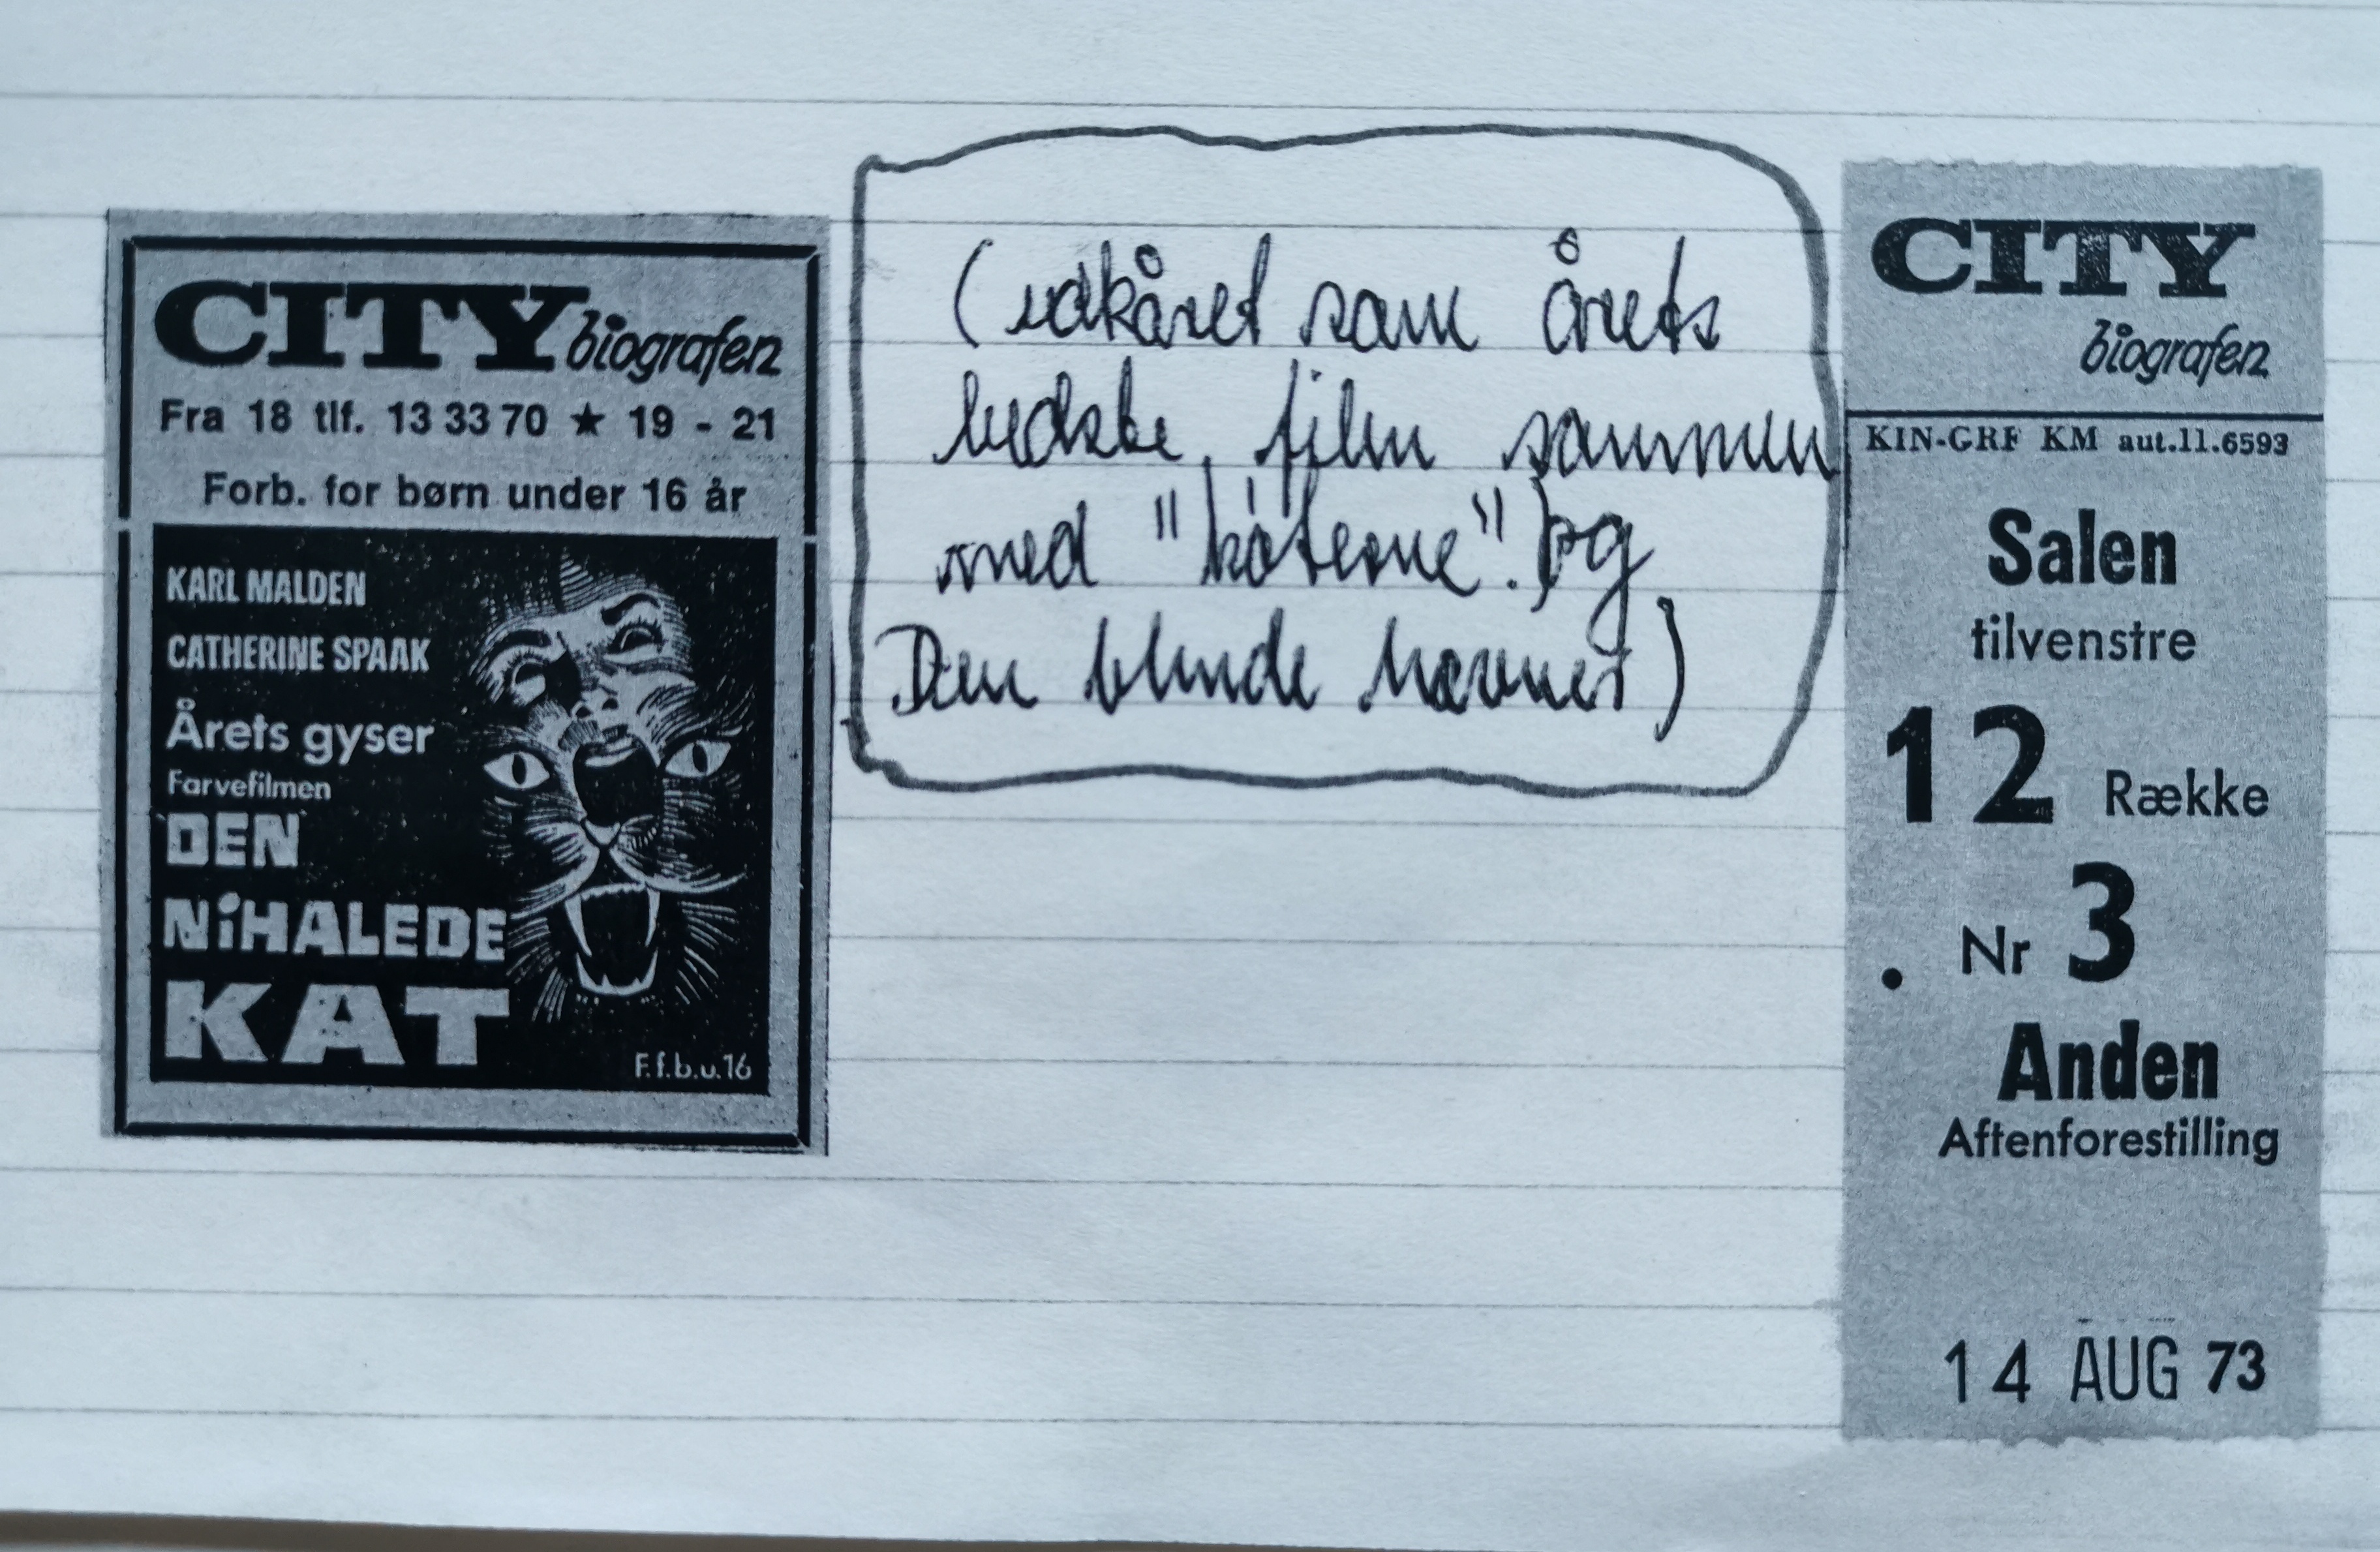 CITY biografen
Fra 18 tlf. 13 33 70 ★ 19 - 21
Forb. for børn under 16 år
KARL MALDEN
CATHERINE SPAAK
Årets gyser
Farvefilmen
DEN
NiHALEDE
KAT
F.f.b.u.16
(udkåret som årets
bedste film sammen
med "køterne".) og
Den blinde hævner)
CITY
biografen
KIN-GRF KM aut.11.6593
Salen
tilvenstre
12 Række
. Nr 3
Anden
Aftenforestilling
14 AUG 73